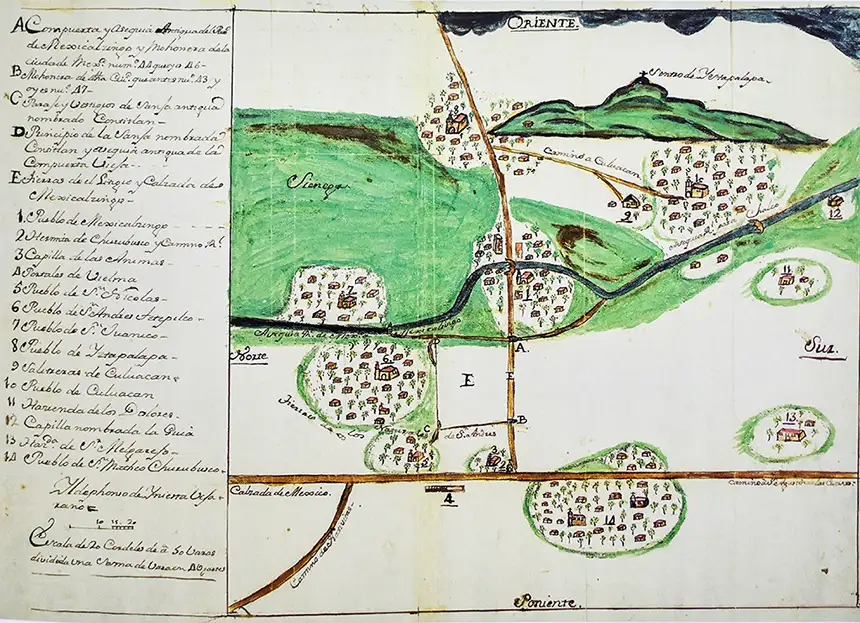 A Compuerta y Asequia Antigua del Rl
de Mexicalzingo y Mohonera de la
ciudad de Mexo num.o 44 que oy 46-
B Mohonera de dha Ciud. que antes nu. 43 y
oy es nu. 47-
C Parage y Vestigios de Sanja antigua
nombrado Contitlan-
D Principio de la Sanja nombrada
Contitlan y asequia antigua de la
Compuerta Vieja-
E tierras de el Single y Calzada de
Mexicalzingo-
1 Pueblo de Mexicalzingo
2 Hermita de Churubusco y Camino Rl.
3 Capilla de las Animas-
4 Portales de Vielma
5 Pueblo de Sn. Nicolas-
6 Pueblo de Sn. Andres Tetepilco-
7 Pueblo de Sn. Juanico-
8 Pueblo de Yztapalapa-
9 Salitreras de Culuacan
10 Pueblo de Culuacan
11 Hazienda de los Dolores-
12 Capilla nombrada la Puia
13 Hazda. de Sn. Melgarejo-
14 Pueblo de Sn. Matheo Churubusco-
Ildephonso de Yniesta Vexa-
rano
10 15 20
Escala de 20 Cordeles de â 50 Varas
dividida una
ORIENTE.
Serro de Yztapalapa-
Camino a Culuacan
8
10
9
12
Sienega
5
1
11
7
Norte
Sur.
A.
6
E
E
C
de Sn. Andres
B
13
2
3
Calzada de Mexico.
4
14
Poniente.